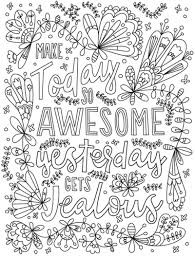 MAKE
Today
SO
AWESOME
yesterday
GETS
Jealous